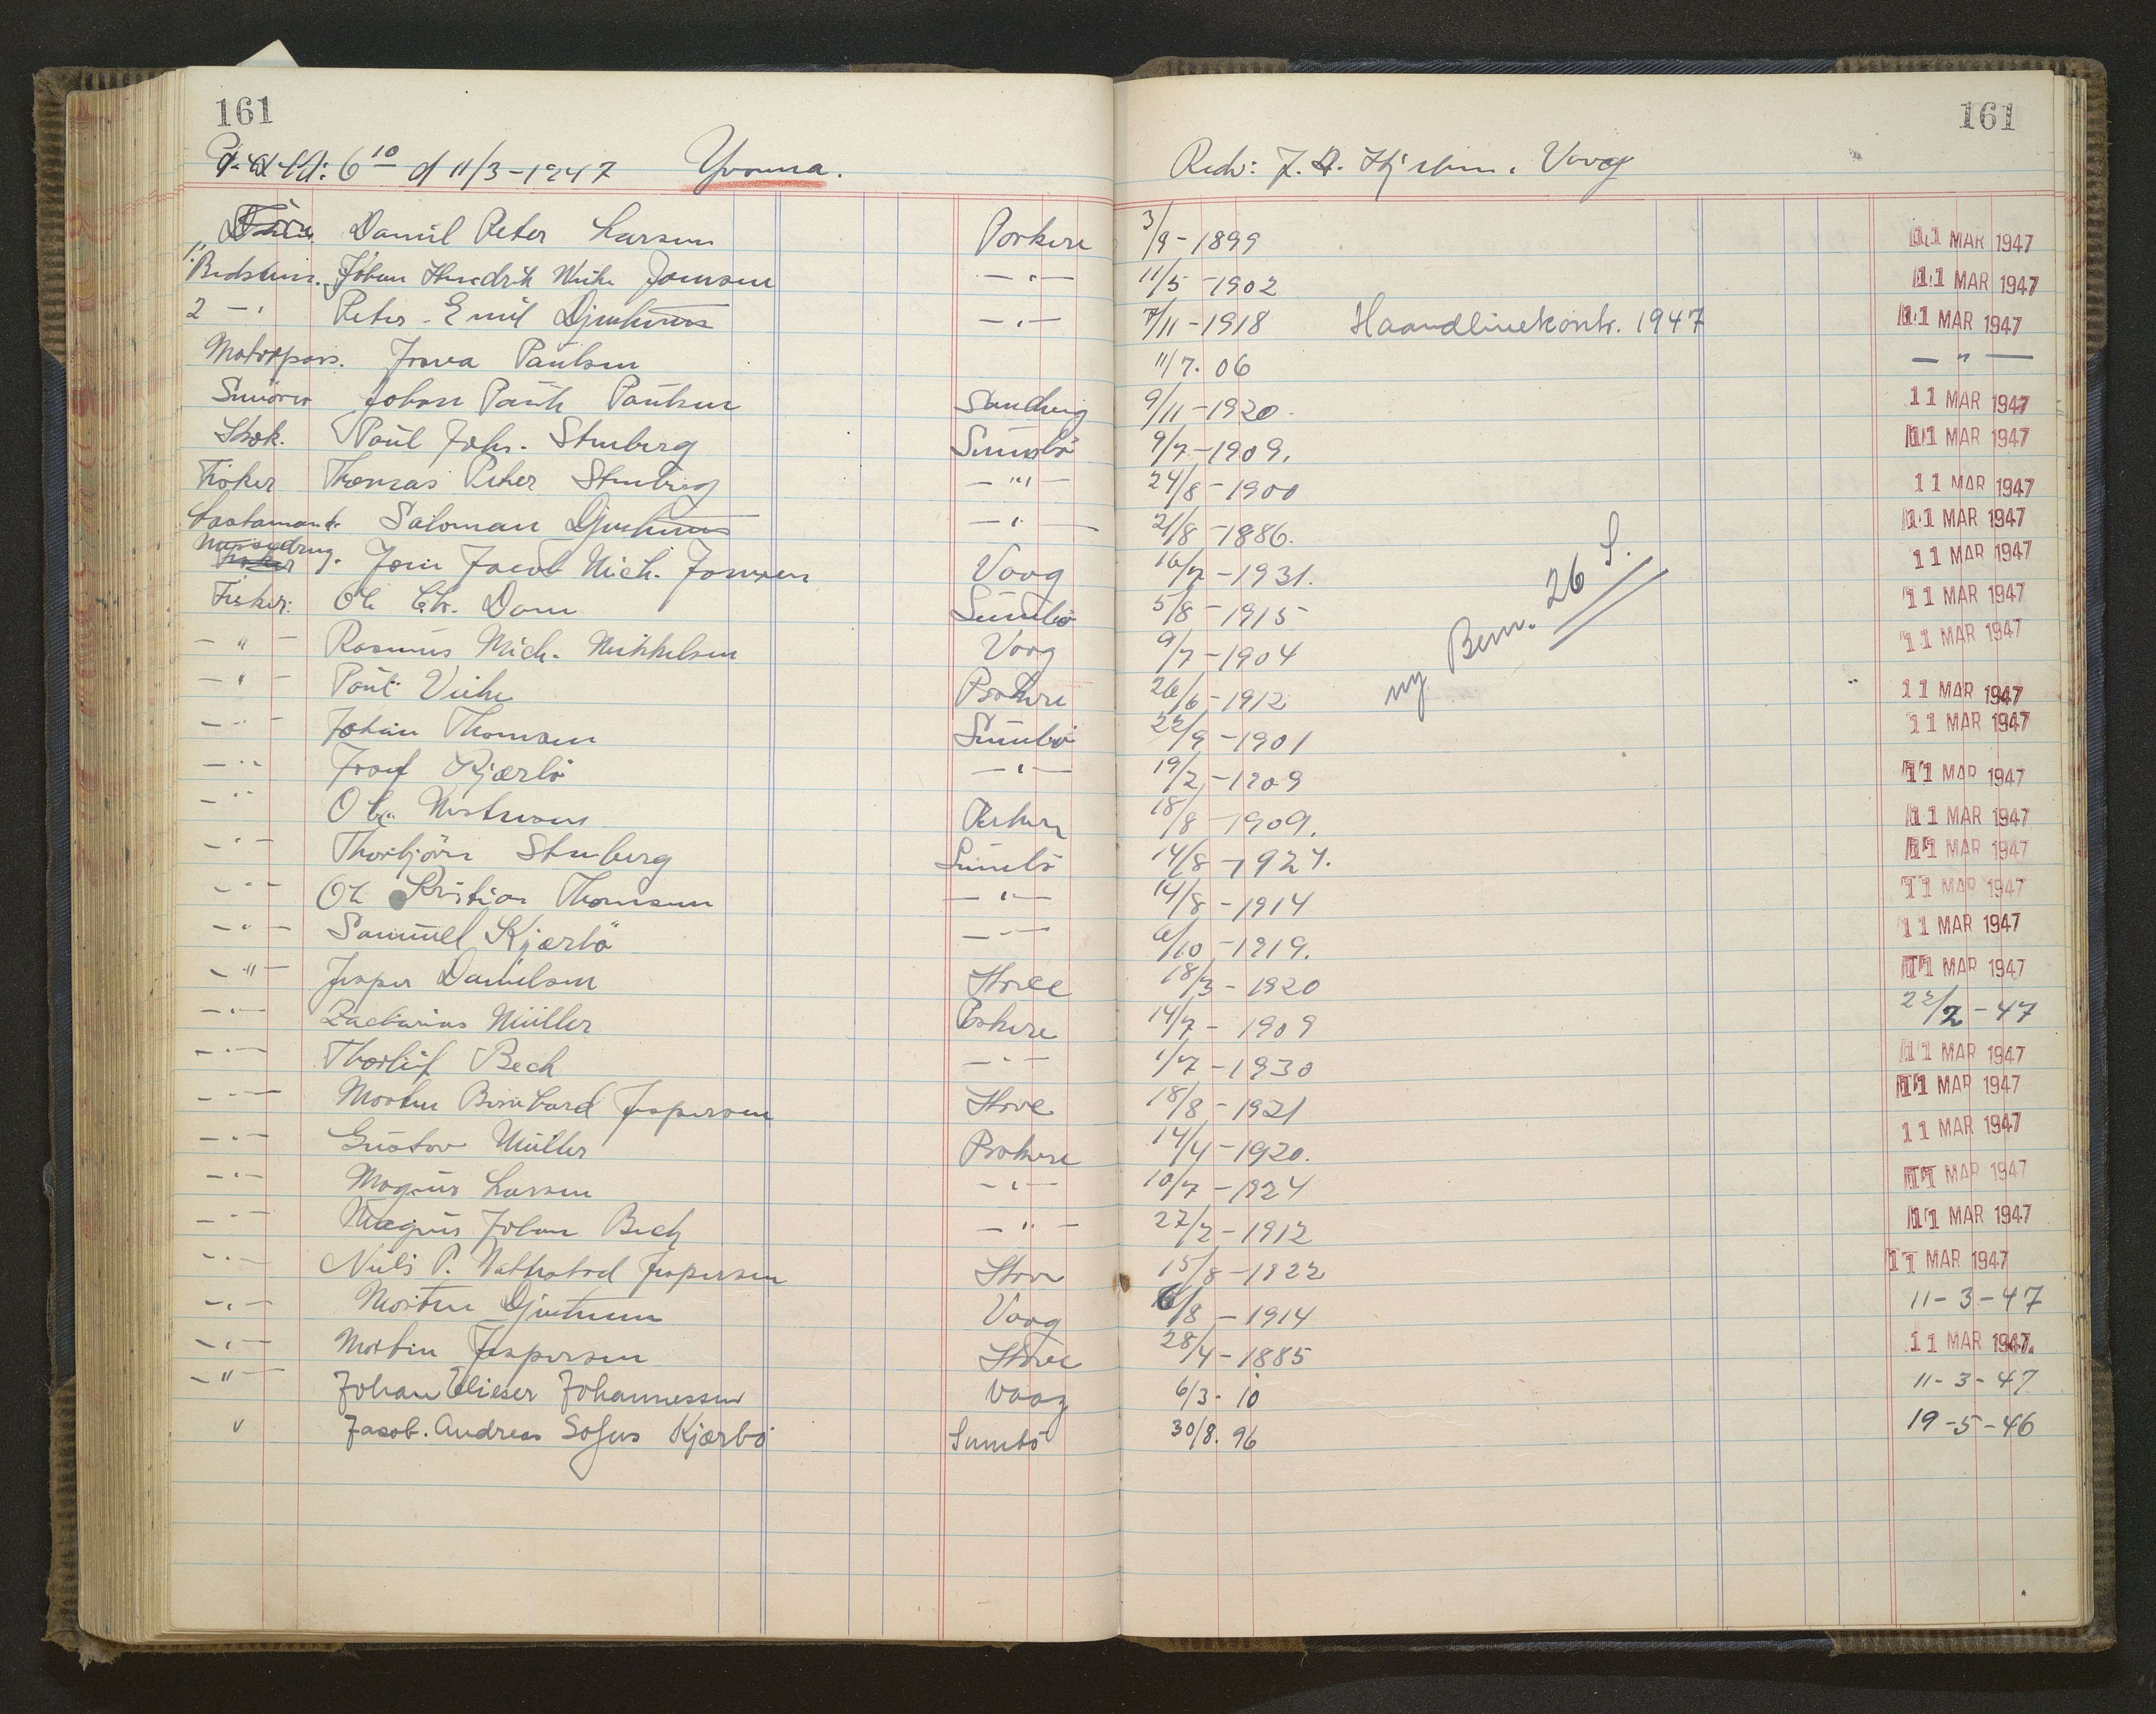 161 161
6 10 d 11/3-1947 Yvonna. Red: J. Vaag
Daniel Peter Larsen Porkere 3/9-1899 11 MAR 1947
1' Bedstm. Johan Hendrik Joensen -"- 11/5-1902 11 MAR 1947
2 -"- Peter Emil Djurhuus -"- 7/11-1918 Haandlinekontr. 1947 11 MAR 1947
Motorpass. Paulsen 11/7. 06 -"-
Smörer Johan Paulsen Sandvig 9/11-1920. 11 MAR 1947
Kok. Poul Johs. Stenberg Sumbö 9/7-1909. 11 MAR 1947
Fisker Thomas Peter Stenberg -"- 24/8-1900 11 MAR 1947
Saloman Djurhuus -"- 21/8-1886. 11 MAR 1947
Messedreng. Fisker Jacob Mich. Joensen Vaag 16/7-1931. 11 MAR 1947
Fisker: Ole Chr. Dam Sumbö 5/8-1915 ny Bem. 26 S. 11 MAR 1947
-"- Rasmus Mich. Mikkelsen Vaag 9/7-1904 11 MAR 1947
-"- Poul Veihe Porkere 26/6-1912 11 MAR 1947
-"- Johan Thomsen Sumbö 22/9-1901 11 MAR 1947
-"- Kjærbö -"- 19/2-1909 11 MAR 1947
-"- Porkere 18/8-1909. 11 MAR 1947
-"- Thorbjörn Stenberg Sumbö 14/8-1924. 11 MAR 1947
-"- Ole Kristian Thomsen -"- 14/8-1914 11 MAR 1947
-"- Samuel Kjærbö -"- 6/10-1919. 11 MAR 1947
-"- Jesper Danielsen Hove 18/3-1920 11 MAR 1947
-"- Zacharias Müller Porkere 14/7-1909 22/2-47
-"- Thorleif Bech -"- 1/7-1930 11 MAR 1947
-"- Morten Bernhard Jespersen Hove 18/8-1921 11 MAR 1947
-"- Gustav Müller Porkere 14/4-1920. 11 MAR 1947
-"- Magnus Larsen -"- 10/7-1924 11 MAR 1947
-"- Magnus Johan Bech -"- 27/2-1912 11 MAR 1947
-"- Niels P. Jespersen Hove 15/8-1922 11 MAR 1947
-"- Morten Djurhuus Vaag 6/8-1914 11-3-47
-"- Morten Jespersen Hove 28/4-1885 11 MAR 1947.
-"- Johan Elieser Johannessen Vaag 6/3-10 11-3-47
" Jacob. Andreas Sofus Kjærbö Sumbö 30/8. 96 19-5-46